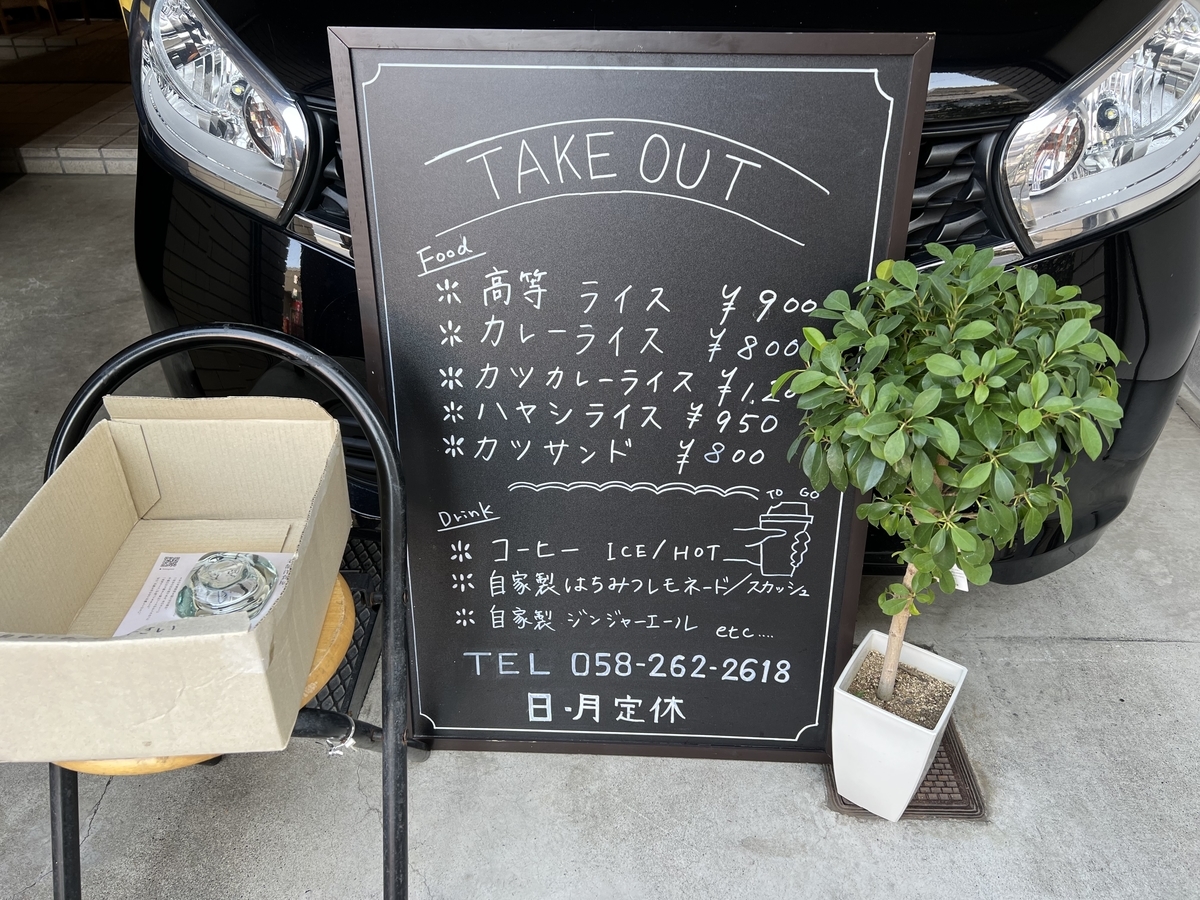 TAKE OUT
Food
※ 高等 ライス ¥900
※ カレーライス ¥800
※ カツカレーライス ¥1,20
※ ハヤシライス ¥950
※ カツサンド ¥800
TO GO
Drink
※ コーヒー ICE/HOT
※ 自家製はちみつレモネード/スカッシュ
※ 自家製 ジンジャーエール etc....
TEL 058-262-2618
日・月定休